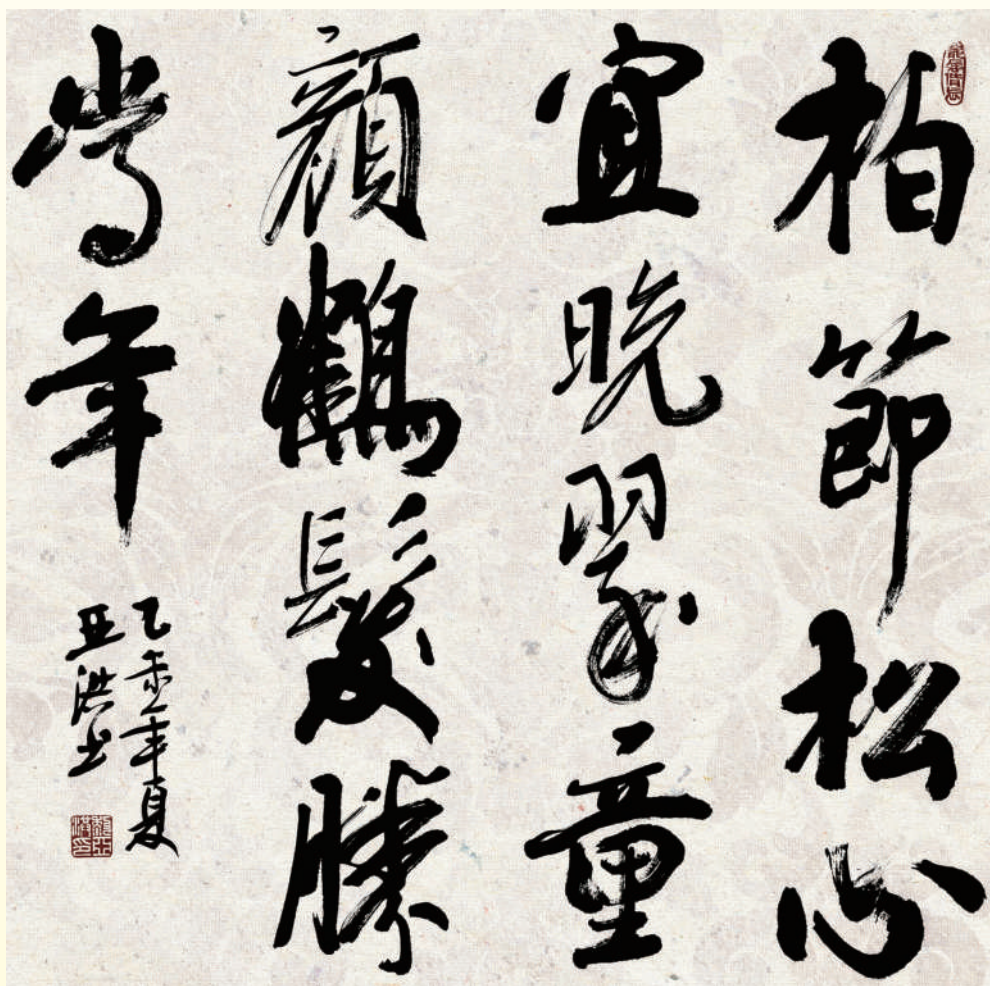 柏節松心
宜晚翠童
顏鶴髮勝
當年
乙未年夏
亚洪书